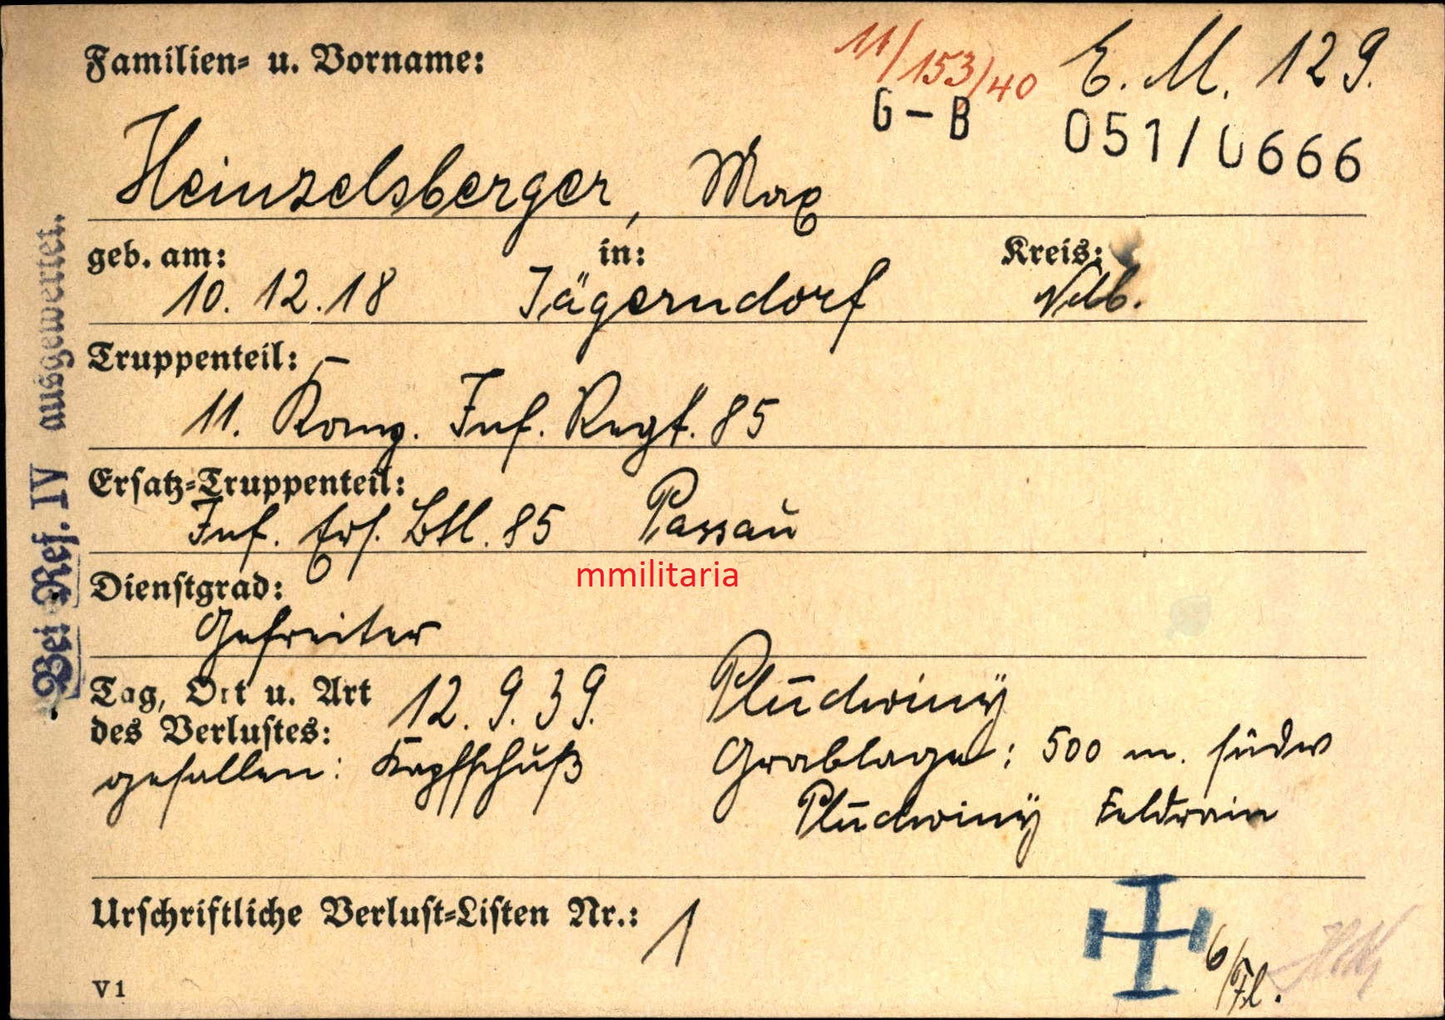 Familien- u. Vorname:
11/153/40
E. M. 129.
G-B
051/0666
Heinzelsberger, Max
geb. am: in: Kreis:
10. 12. 18 Jägerndorf Ndb.
Truppenteil:
11. Komp. Inf. Regt. 85
Ersatz-Truppenteil:
Inf. Ers. Btl. 85 Passau
mmilitaria
Dienstgrad:
Gefreiter
Tag, Ort u. Art 12. 9. 39. Pludwiny
des Verlustes:
gefallen: Kopfschuß Grablage: 500 m. südw
Pludwiny Feldrain
Urschriftliche Verlust-Listen Nr.: 1
6/Fl.
V1
Bei Ref. IV ausgewertet.